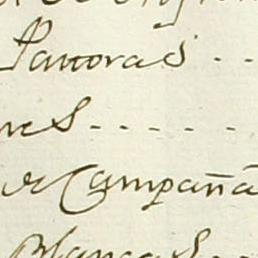 Pastoras . .
nes - - - - -
de Campaña
Blancas